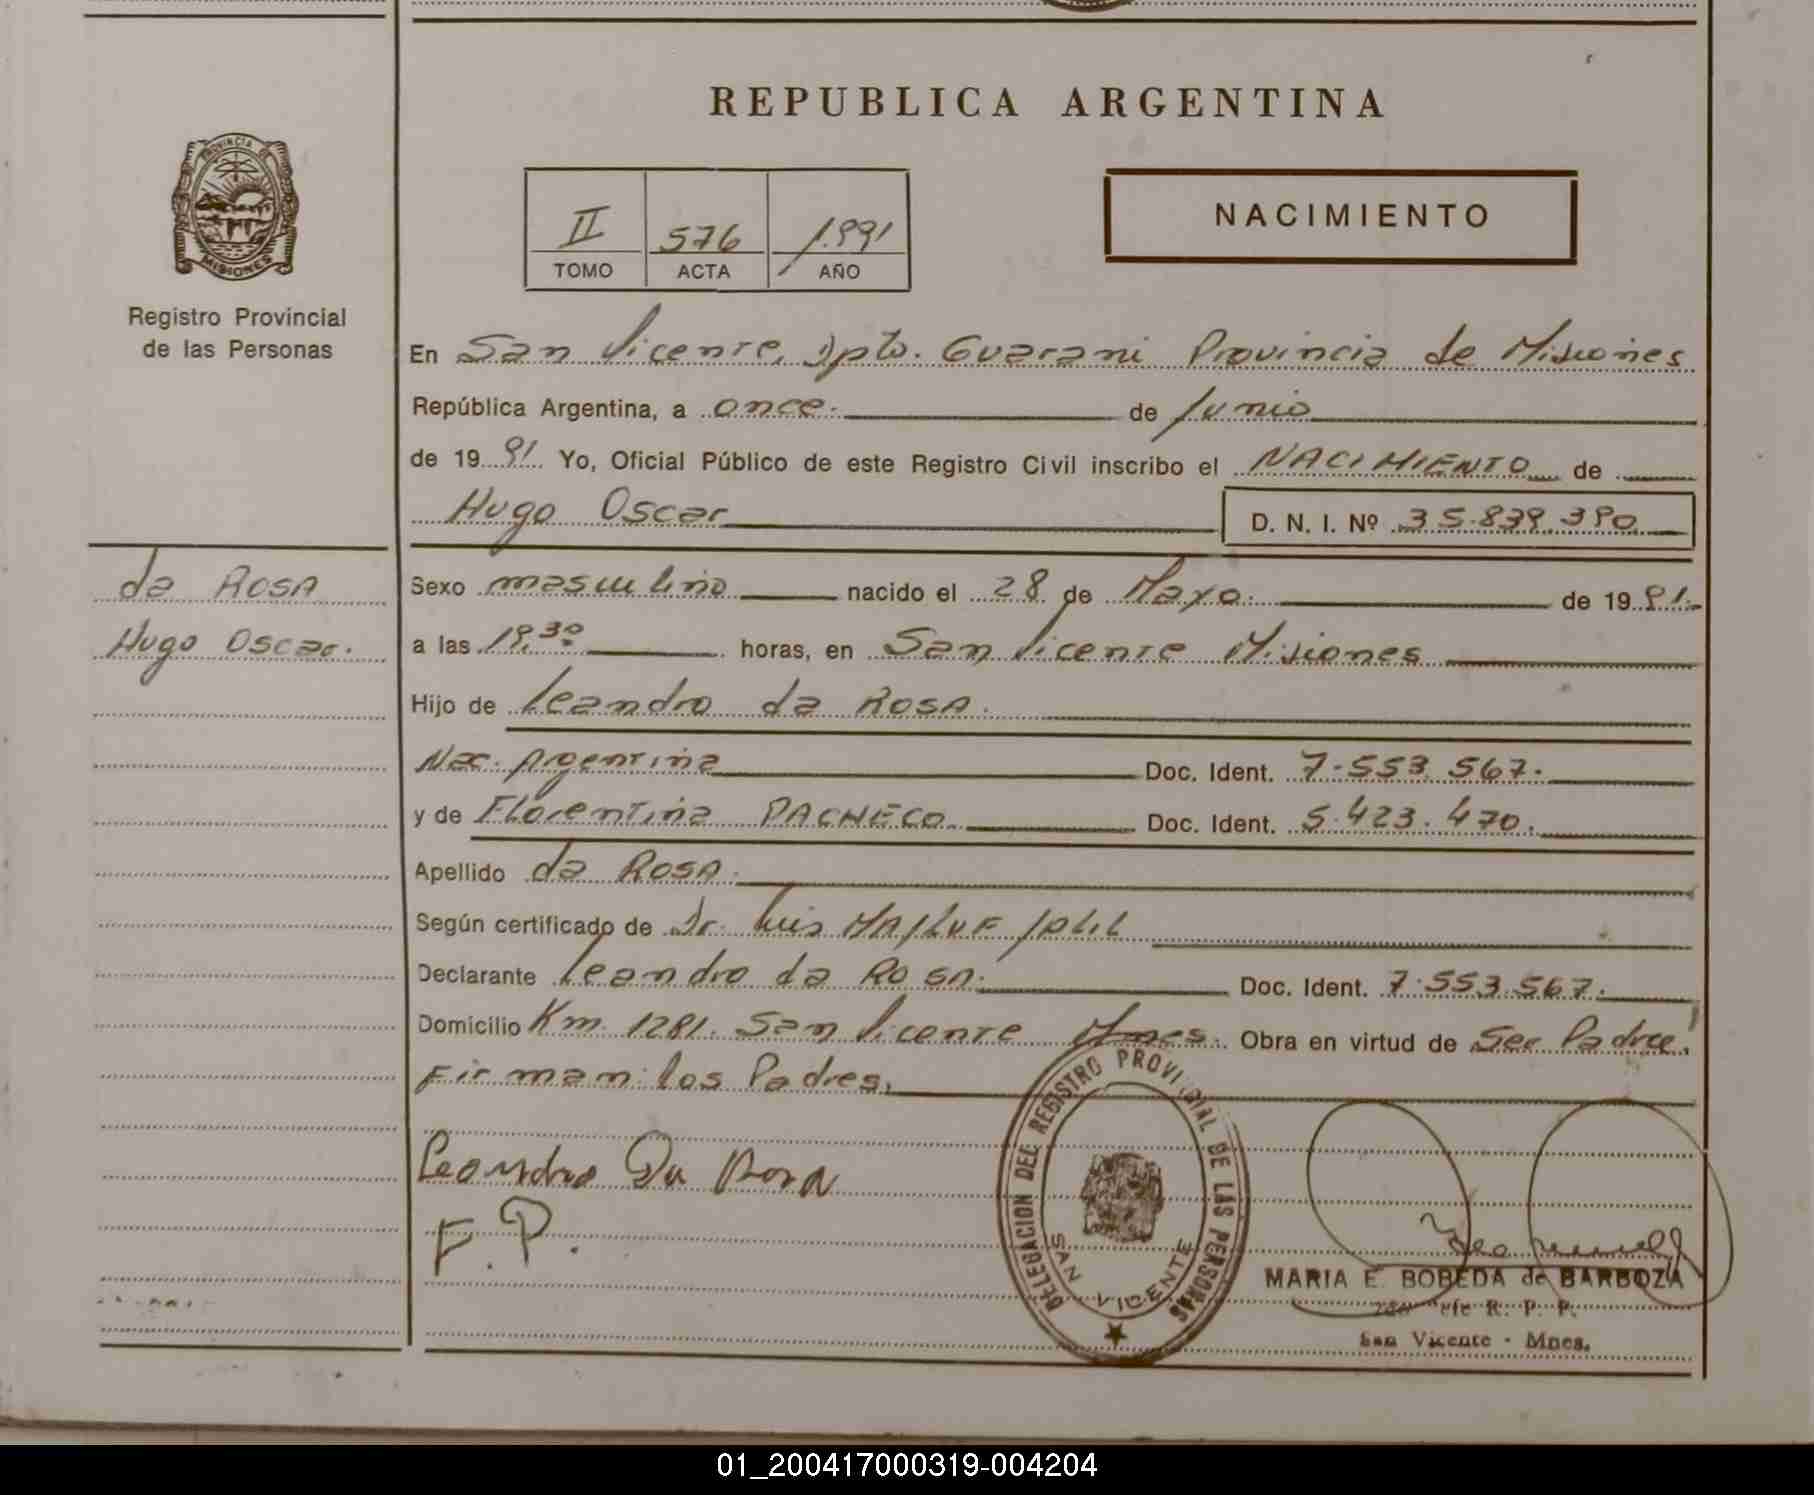 REPUBLICA ARGENTINA
PROVINCIA DE MISIONES
Registro Provincial
de las Personas
II 576 1.991
TOMO ACTA AÑO
NACIMIENTO
En San Vicente, Dpto. Guarani Provincia de Misiones
República Argentina, a once. de Junio
de 19 91. Yo, Oficial Público de este Registro Civil inscribo el NACIMIENTO de
Hugo Oscar D. N. I. Nº 35.839.390
da ROSA
Hugo Oscar.
Sexo masculino nacido el 28 de Mayo. de 19 91.
a las 19,30 horas, en San Vicente Misiones
Hijo de Leandro da ROSA.
Nac. Argentina Doc. Ident. 7.553.567.
y de Florentina PACHECO. Doc. Ident. 5.423.470.
Apellido da ROSA.
Según certificado de Dr. Luis
Declarante Leandro da ROSA. Doc. Ident. 7.553.567.
Domicilio Km. 1281. San Vicente Mnes. Obra en virtud de Ser Padre.
Firman: los Padres.
Leandro Da Rosa
F. P.
DELEGACION DEL REGISTRO PROVINCIAL DE LAS PERSONAS
SAN VICENTE
MARIA E. BOBEDA de BARBOZA
R. P. P.
San Vicente - Mnes.
01_200417000319-004204